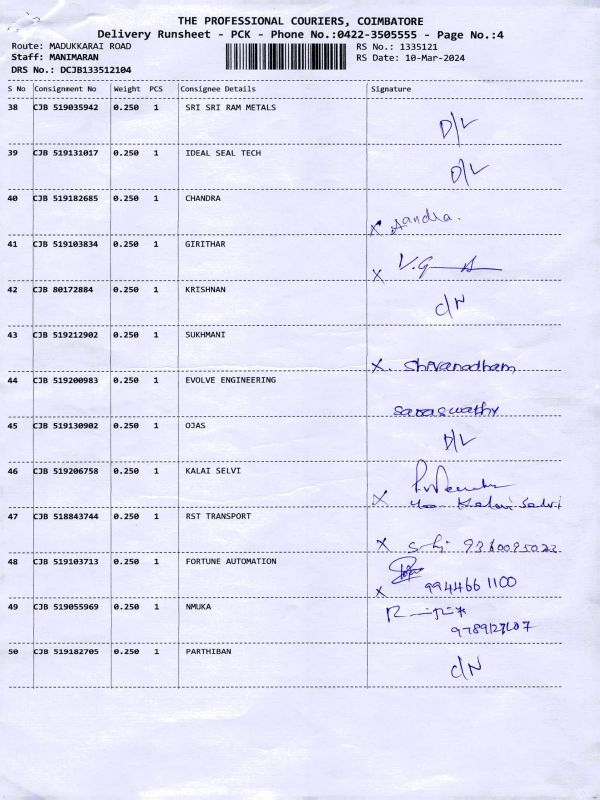 THE PROFESSIONAL COURIERS, COIMBATORE
Delivery Runsheet - PCK - Phone No.:0422-3505555 - Page No.:4
Route: MADUKKARAI ROAD RS No.: 1335121
Staff: MANIMARAN RS Date: 10-Mar-2024
DRS No.: DCJB133512104
S No Consignment No Weight PCS Consignee Details Signature
38 CJB 519035942 0.250 1 SRI SRI RAM METALS
D/L
39 CJB 519131017 0.250 1 IDEAL SEAL TECH
D/L
40 CJB 519182685 0.250 1 CHANDRA
X
41 CJB 519103834 0.250 1 GIRITHAR
X V.G
42 CJB 80172884 0.250 1 KRISHNAN
C/N
43 CJB 519212902 0.250 1 SUKHMANI
X. Shivanadham
44 CJB 519200983 0.250 1 EVOLVE ENGINEERING
Saraswathy
45 CJB 519130902 0.250 1 OJAS
D/L
46 CJB 519206758 0.250 1 KALAI SELVI
X Kalai Selvi
47 CJB 518843744 0.250 1 RST TRANSPORT
X 9360095023
48 CJB 519103713 0.250 1 FORTUNE AUTOMATION
X 994466 1100
49 CJB 519055969 0.250 1 NMUKA
50 CJB 519182705 0.250 1 PARTHIBAN
C/N